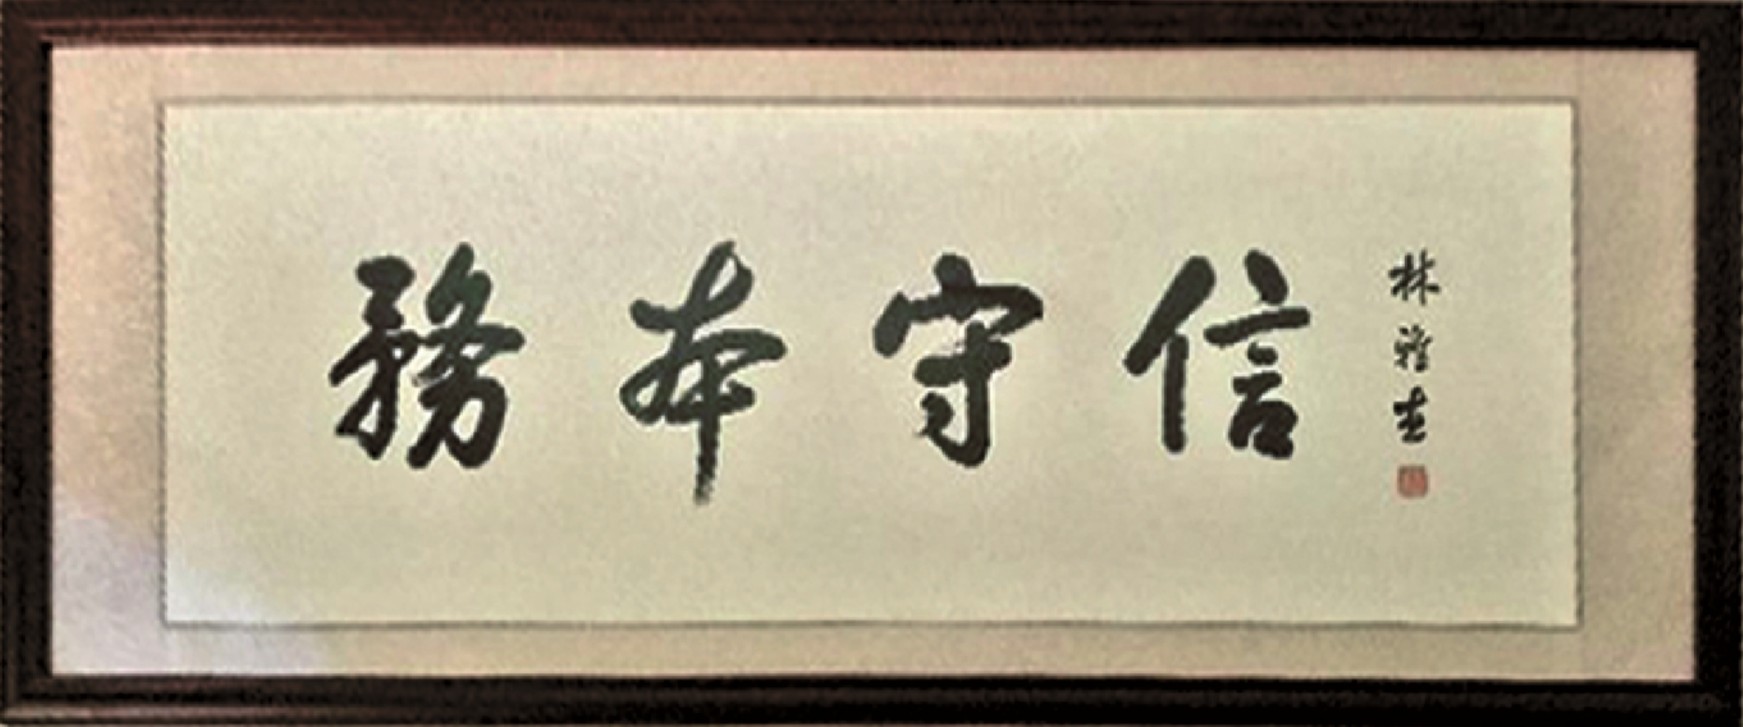 務本守信
林雅志